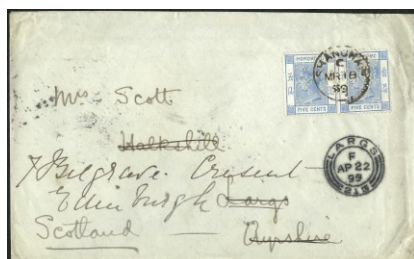 HONG KONG
FIVE CENTS FIVE CENTS
SHANGHAI
C
MR 18
99
Mrs Scott
Halkshill
7 Belgrave Cresent
Edinburgh Largs
Scotland — Ayrshire
LARGS
F
AP 22
99